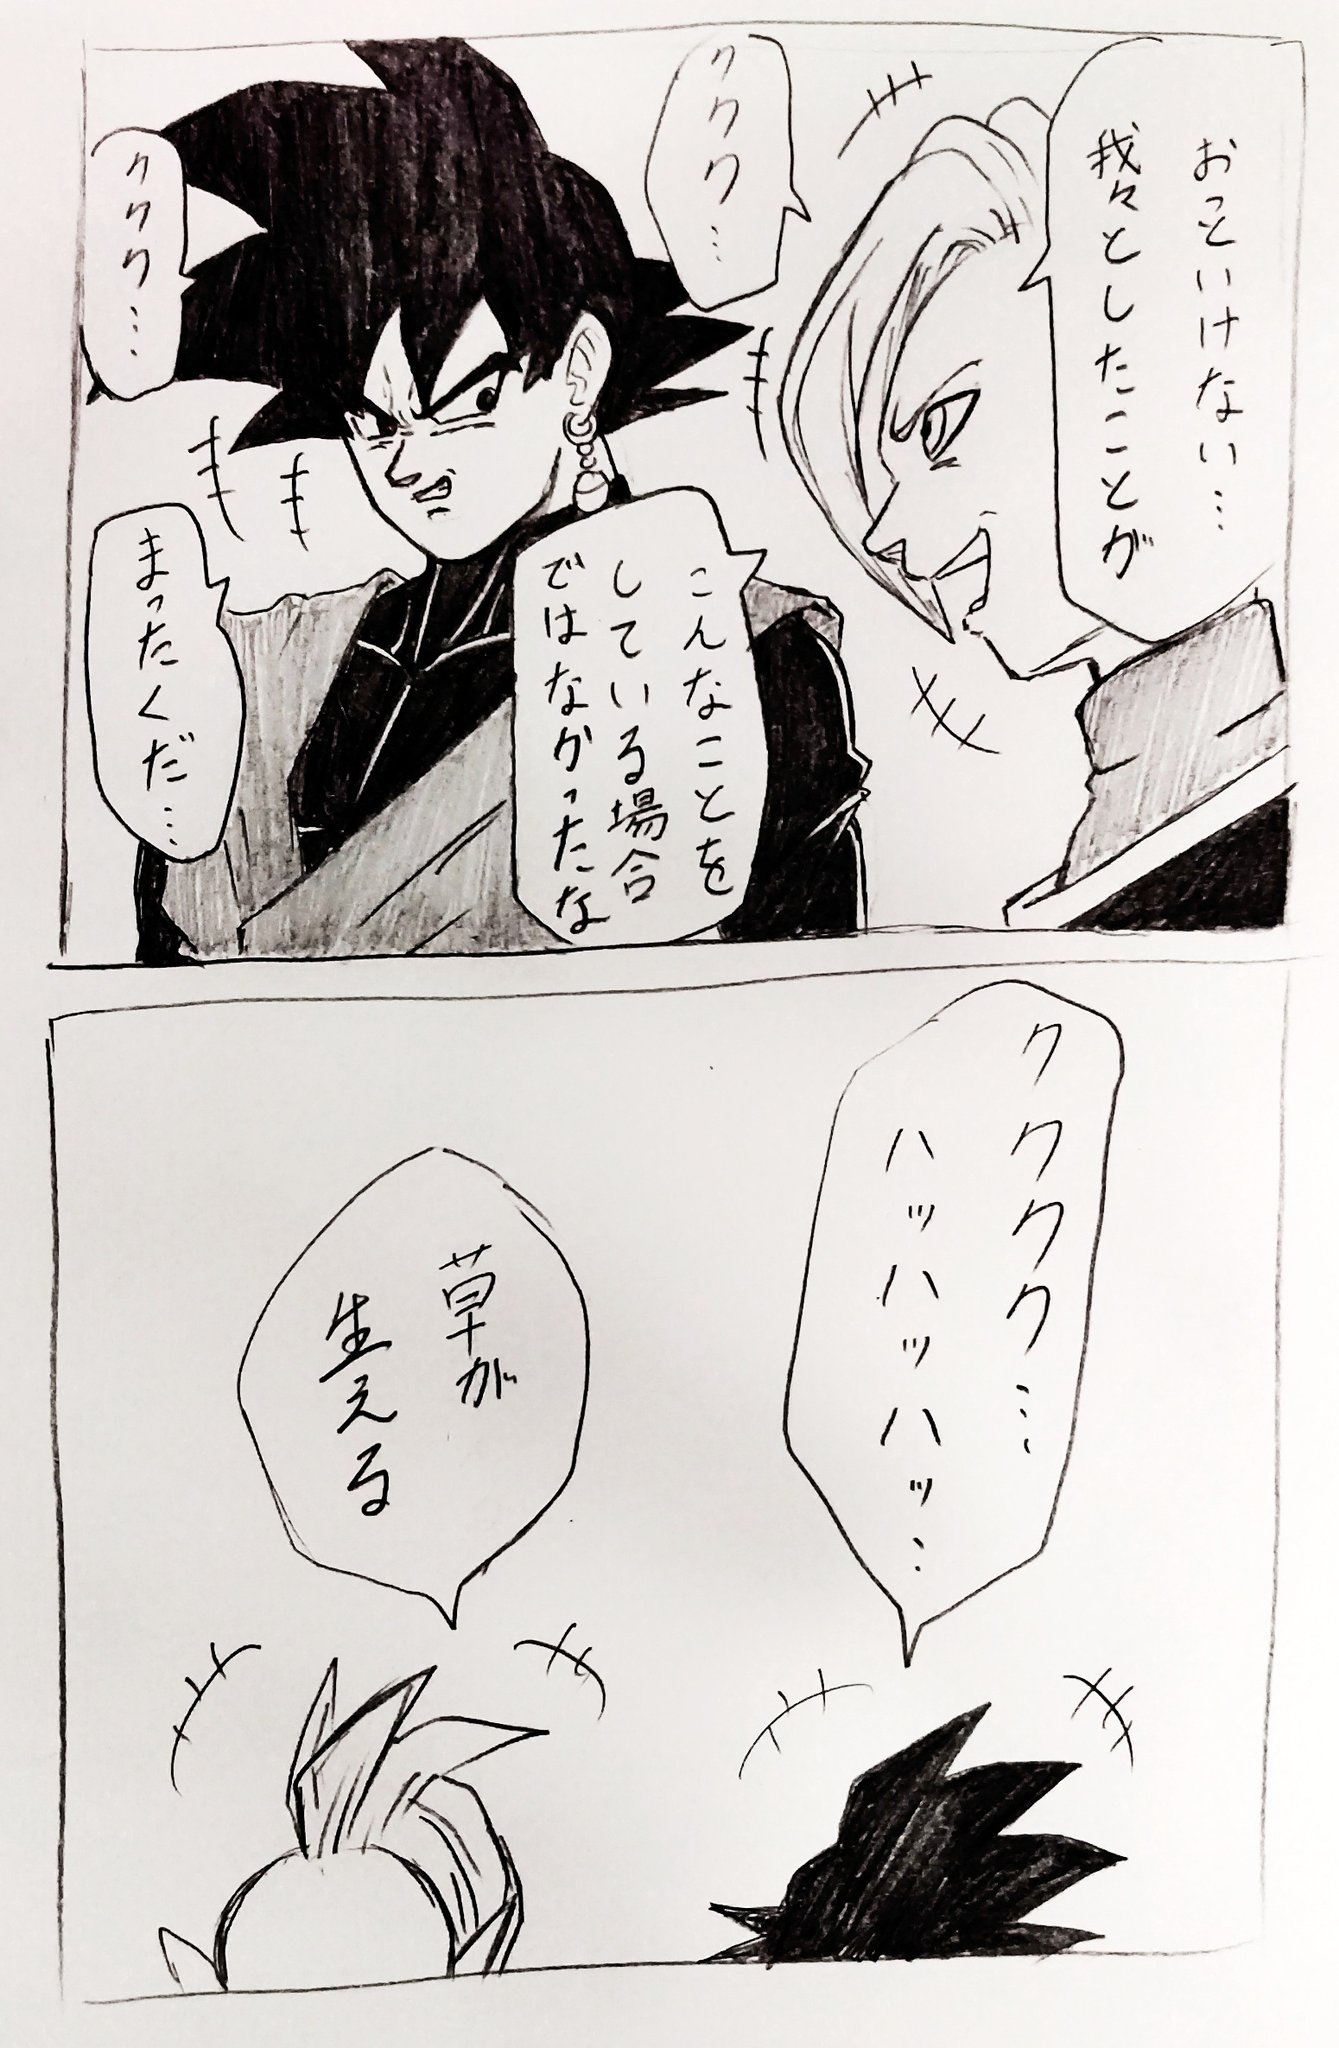 おっといけない…
我々としたことが
ククク…
こんなことを
している場合
ではなかったな
ククク…
まったくだ…
ククククク…
ハッハッハッハッ…
草が
生える